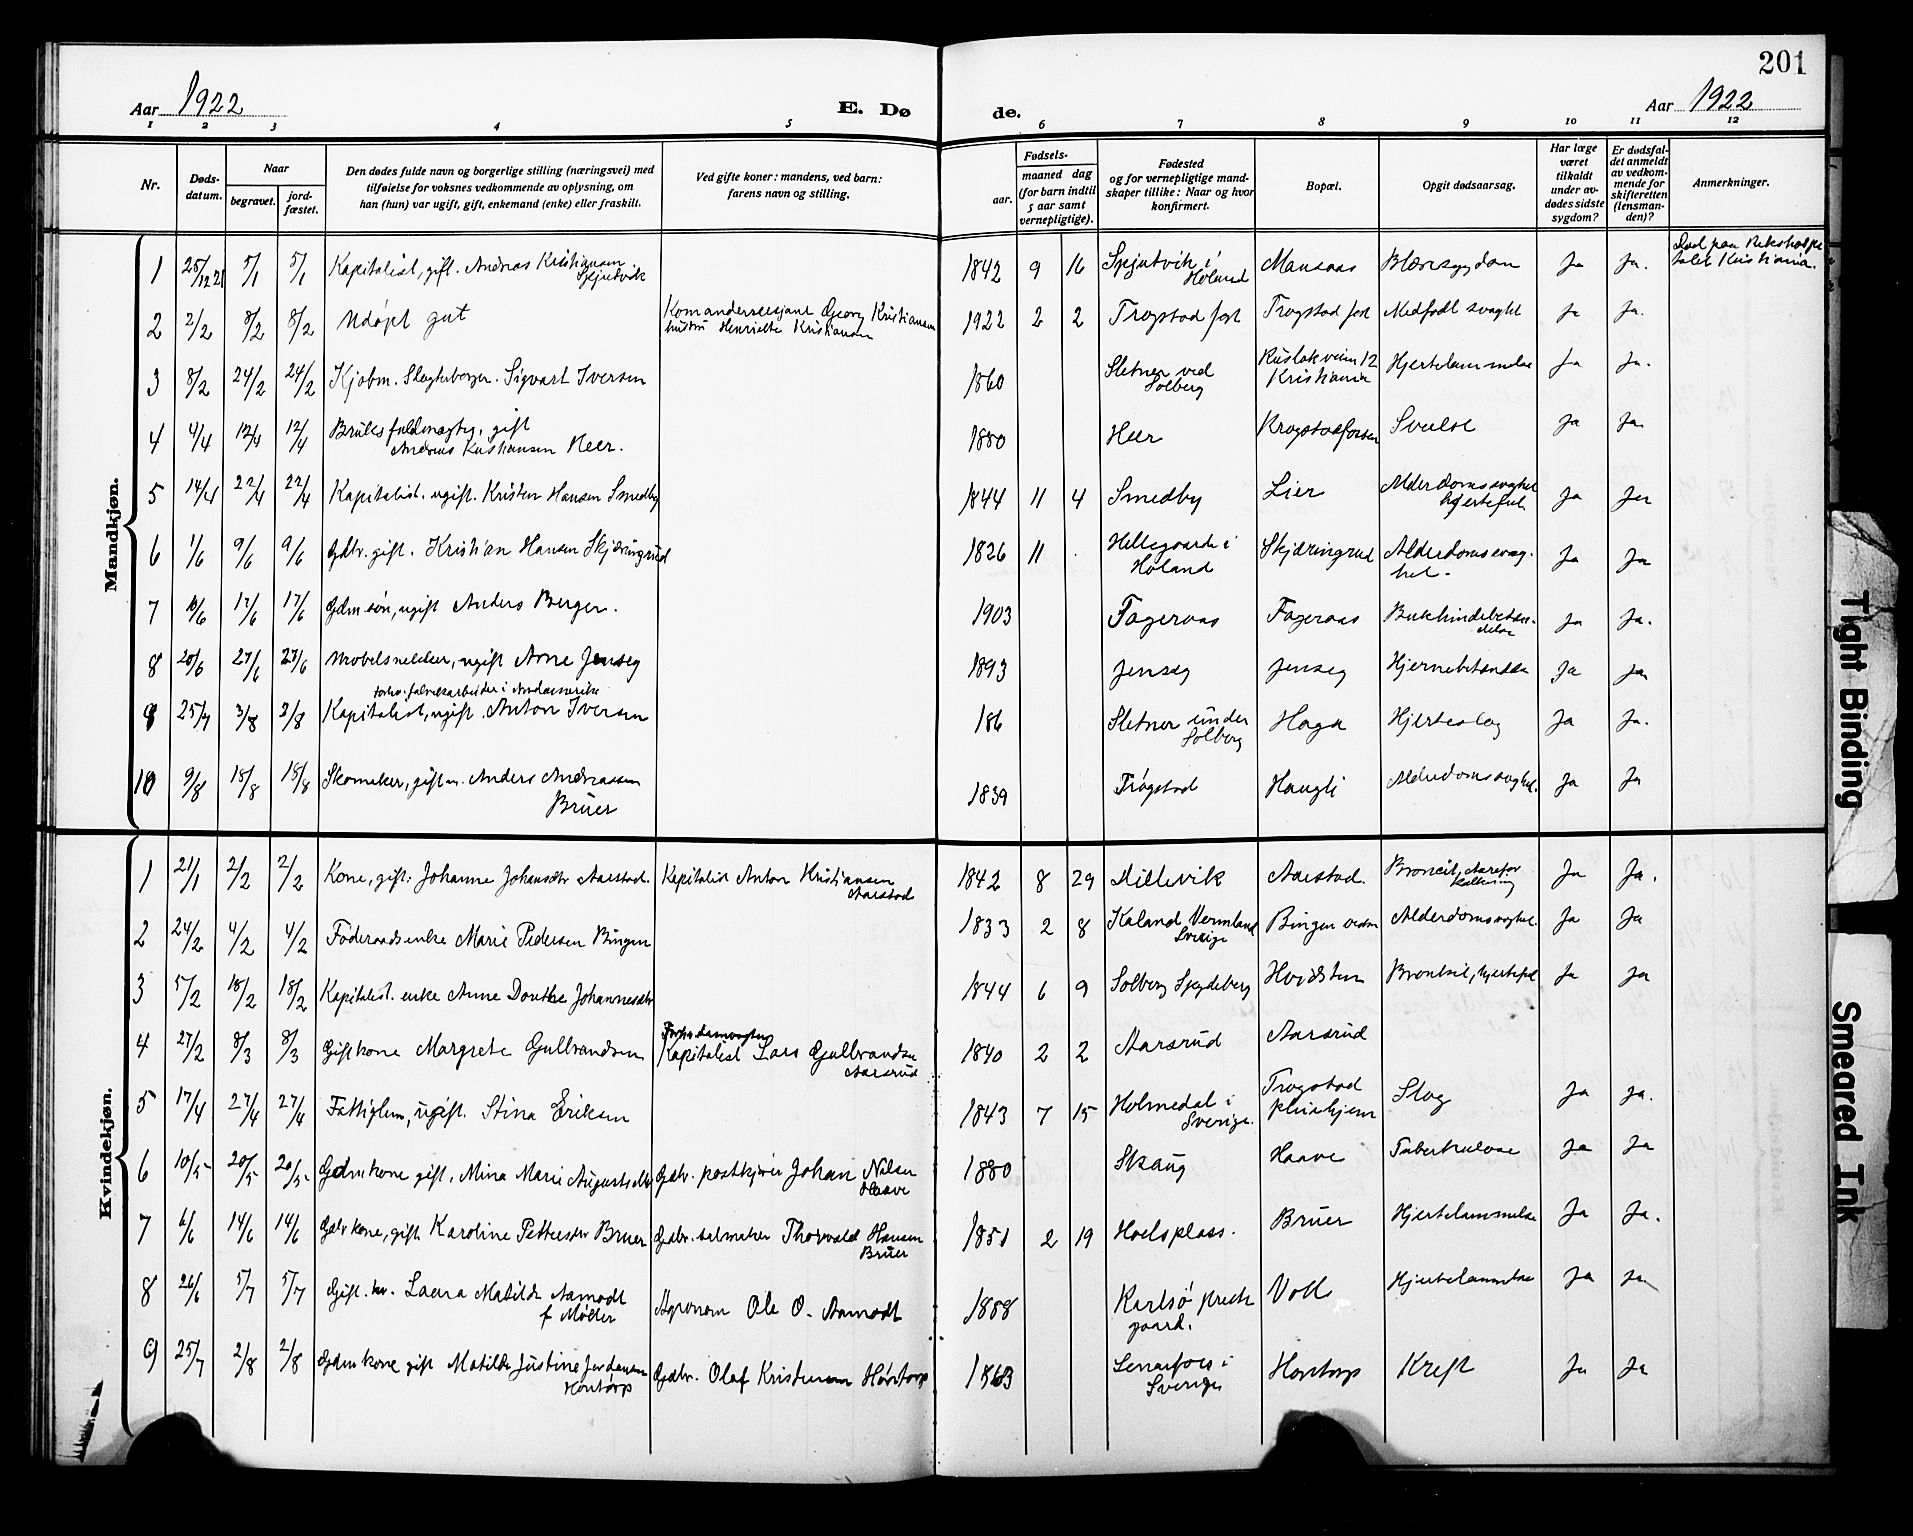 201
Aar 1922
E. Dø
de.
Aar 1922
1 2 3 4 5 6 7 8 9 10 11 12
Nr.
Døds-
datum.
Naar
begravet.
jord-
fæstet.
Den dødes fulde navn og borgerlige stilling (næringsvei) med
tilføielse for voksnes vedkommende av oplysning, om
han (hun) var ugift, gift, enkemand (enke) eller fraskilt.
Ved gifte koner: mandens, ved barn:
farens navn og stilling.
Fødsels-
aar.
maaned dag
(for barn indtil
5 aar samt
vernepligtige).
Fødested
og for vernepligtige mand-
skaper tillike: Naar og hvor
konfirmert.
Bopæl.
Opgit dødsaarsag.
Har læge
været
tilkaldt
under av-
dødes sidste
sygdom?
Er dødsfal-
det anmeldt
av vedkom-
mende for
skifteretten
(lensman-
den)?
Anmerkninger.
Mandkjøn.
1 25/12 21 5/1 5/1 Kapitalist, gift. Andreas Kristiansen
Spjutvik
1842 9 16 Spjutvik i
Høland
Mansaas Blæresygdom Ja Ja. Død paa Rikshospi
talet Kristiania.
2 2/2 8/2 8/2 Udøpt gut Komandersersjant Georg Kristiansen
hustru Henriette Kristiansen
1922 2 2 Trøgstad fort Trøgstad fort Medfødt svaghet Ja Ja.
3 8/2 24/2 24/2 Kjøbm. Slagterborger. Sigvart Iversen 1860 Sletner ved
Solberg
Kristiania
Hjertelammelse Ja Ja.
4 4/4 12/4 12/4 Bruksfuldmægtig, gift
Andreas Kristiansen Heer.
1880 Heer Krogstadfossen Svulst Ja Ja
5 14/4 22/4 22/4 Kapitalist. ugift. Kristen Hansen Smedby 1844 11 4 Smedby Lier Alderdomssvaghet
hjertefeil
Ja Ja
6 1/6 9/6 9/6 Gdbr. gift. Kristian Hansen Skjæringrud 1826 11 Hellegaarde i
Høland
Skjæringrud Alderdomssvag-
het.
Ja Ja
7 10/6 17/6 17/6 Gdm. søn, ugift Anders Berger. 1903 Fageraas Fageraas Bukhindebetæn-
delse
Ja Ja.
8 20/6 27/6 27/6 Møbelsnekker, ugift Arne Jenseg 1893 Jenseg Jenseg Hjernebetændelse Ja Ja
9 25/7 3/8 3/8 forhv. fabriksarbeider i Nordamerika
Kapitalist, ugift. Anton Iversen
186 Sletner under
Solberg
Haga Hjerteslag Ja Ja.
10 9/8 18/8 18/8 Skomaker, gift m. Anders Andreassen
Bruer
1839 Trøgstad Haugli Alderdomssvaghet. Ja Ja
Kvindekjøn.
1 21/1 2/2 2/2 Kone, gift: Johanne Johansdtr Aarstad. Kapitalist Anton Kristiansen
Aarstad
1842 8 29 Lillevik Aarstad. Broncit, Aarefor
kalkning
Ja Ja.
2 24/2 4/2 4/2 Føderaadsenke Marie Pedersen Bingen 1833 2 8 Kaland Vermland
Sverige
Bingen Alderdomssvaghet. Ja Ja
3 5/2 18/2 18/2 Kapitalist. enke Anne Dorthea Johannesdtr 1844 6 9 Solberg Spydeberg Hvidsten Bronkit, hjertefeil Ja Ja
4 27/2 8/3 8/3 Gift kone Margrete Gulbrandsen
Kapitalist Lars Gulbrandsen
Aarsrud
1840 2 2 Aarsrud Aarsrud
5 17/4 27/4 27/4 Fattiglem, ugift. Stina Eriksen 1843 7 15 Holmedal i
Sverige.
Trøgstad
pleiehjem
Slag Ja Ja.
6 10/5 20/5 20/5 Gdm kone gift, Mina Marie Augustsdtr Gdbr. postkjører Johan Nilsen
Haave
1880 Skaug Haave Tuberkulose Ja Ja
7 6/6 14/6 14/6 Gdbr kone, gift Karoline Pettersdtr Bruer Gdbr. salmaker Thorvald Hansen
Bruer
1851 2 19 Hoelsplass. Bruer Hjertelammelse Ja Ja.
8 26/6 5/7 5/7 Gift. kv. Laura Matilde Aamodt
f Møller
Agronom Ole O. Aamodt 1888 Karlsø prest
gaard.
Voll Hjertelammelse Ja Ja
9 25/7 2/8 2/8 Gdm kone gift Matilde Justine Jordansen
Hørtorp
Gdbr. Olaf Kristensen Hørtorp 1863 Lennefoss i
Sverige
Hørtorp Kreft Ja Ja
Tight Binding
Smeared Ink